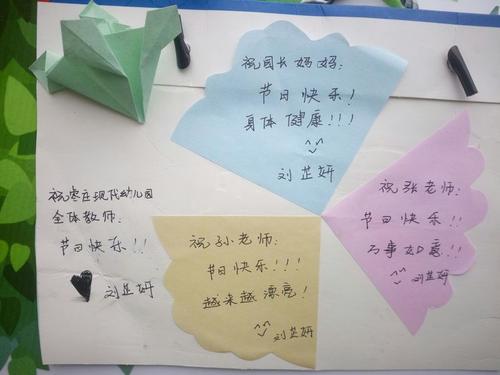 祝园长妈妈：
节日快乐！
身体健康！！！
刘芷妍
祝枣庄现代幼儿园
全体教师：
节日快乐！！
刘芷妍
祝孙老师：
节日快乐！！！
越来越漂亮！
刘芷妍
祝张老师：
节日快乐！！
万事如意！！！
刘芷妍